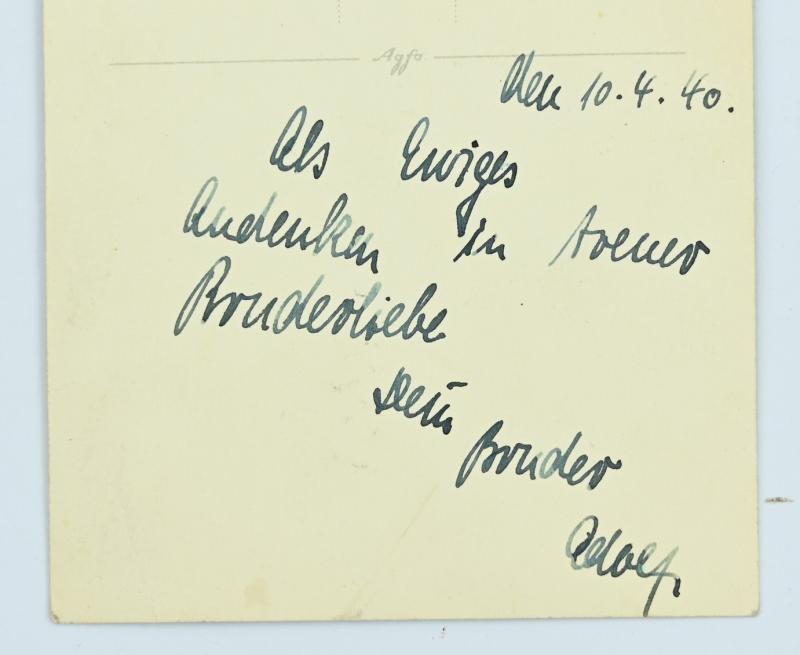 Agfa
den 10.4.40.
Als Ewiges
Andenken in treuer
Bruderliebe
Dein
Bruder
Adolf.